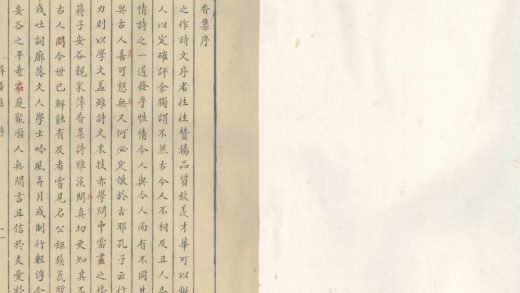 香集序
之作詩文序者往往贊揚品質欽羨才華可以擬
人以定確評余獨謂不然古今人不相及且人各
情詩之一道發乎性情今人與今人尚有不同其
與古人善可想與又何必定倣於古耶孔子云行
力則以學文蓋雖詩文末技亦學問中當盡之
蔣子安谷來萍香集詩雅淡問真切更知其不
古人問今世已鮮能有及者嘗見名公鉅族氣質
或吐詞廓落文人學士吟風弄月或制行輕浮今
安谷之平素家庭聚順人無間言且信於友愛於